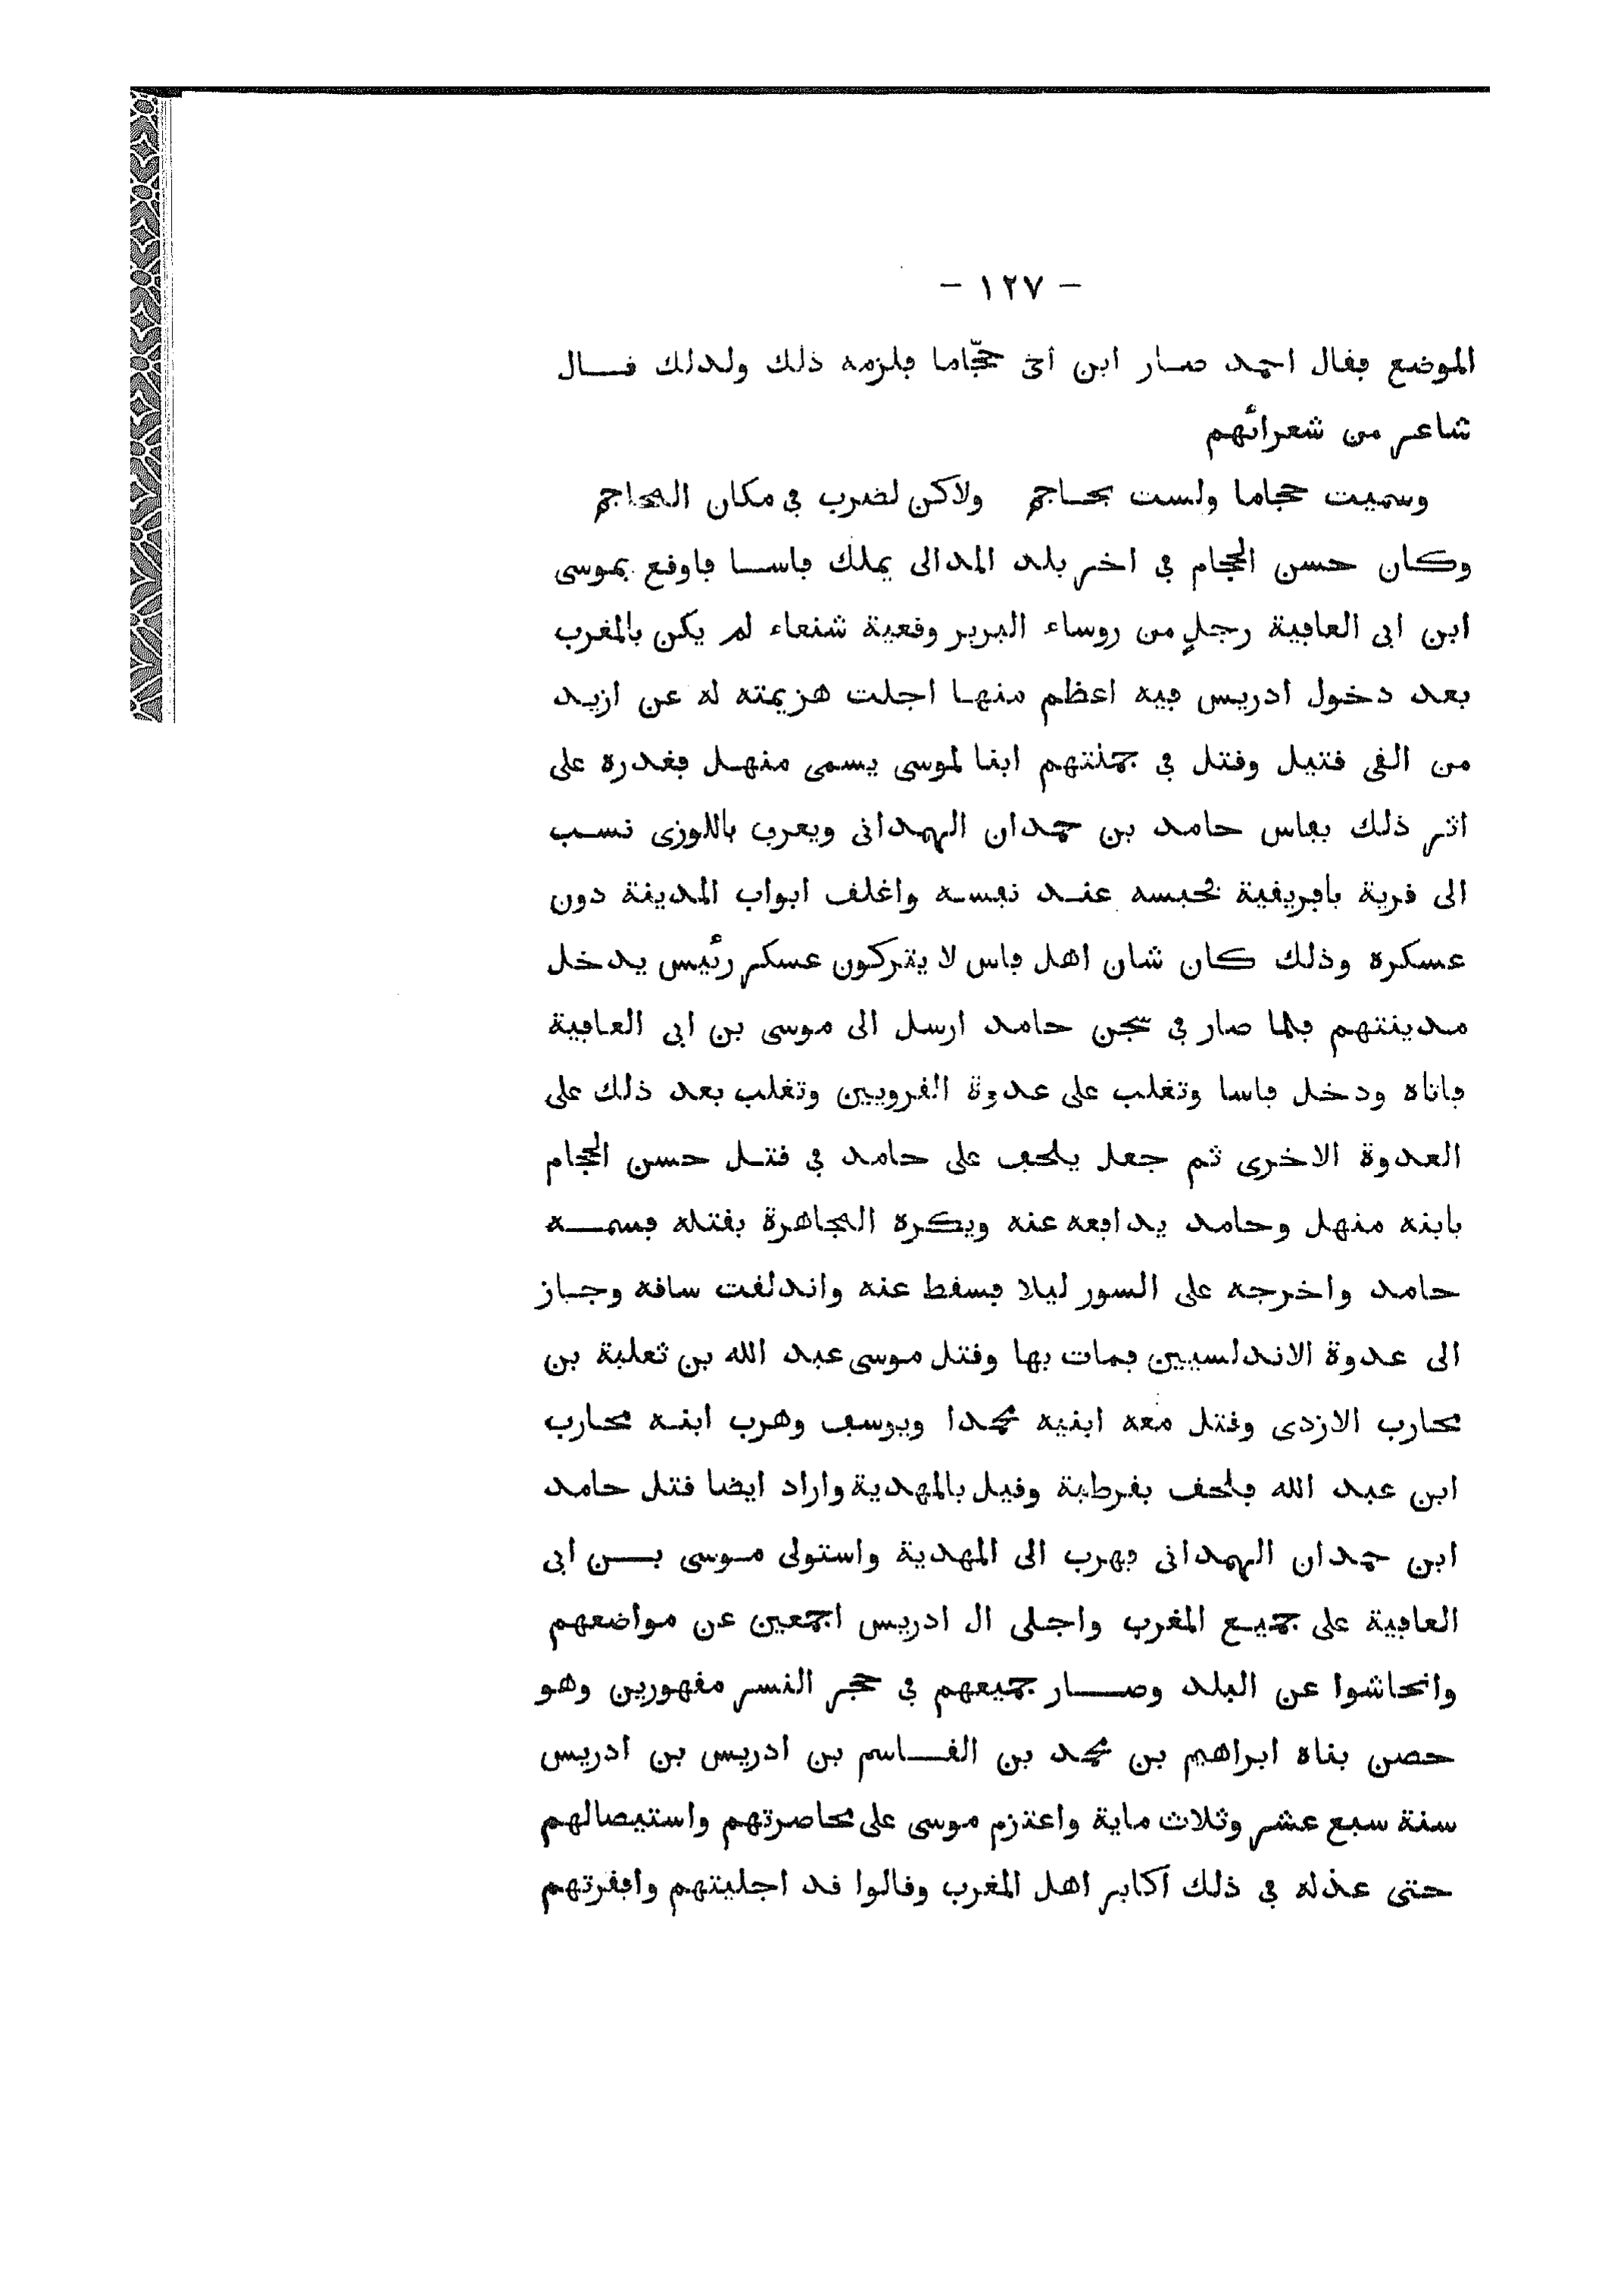 - ١٢٧ -
الموضع فقال احمد صار ابن اخى حجّاما فلزمه ذلك ولدلك قال
شاعر من شعرائهم
وسميت حجاما ولست بحاجم ولاكن لضرب فى مكان المحاجم
وكان حسن الحجام فى اخر بلد المدالى يملك فاسا فاوقع بموسى
ابن ابى العافية رجلٍ من روساء البربر وقعية شنعاء لم يكن بالمغرب
بعد دخول ادريس فيه اعظم منها اجلت هزيمته له عن ازيد
من الفى قتيل وقتل فى جملتهم ابنا لموسى يسمى منهل فغدره على
اثر ذلك بفاس حامد بن حمدان الهمدانى ويعرف باللوزى نسب
الى قرية بافريقية فحبسه عند نفسه واغلق ابواب المدينة دون
عسكره وذلك كان شان اهل فاس لا يتركون عسكر رئيس يدخل
مدينتهم فلما صار فى سجن حامد ارسل الى موسى بن ابى العافية
فاتاه ودخل فاسا وتغلب على عدوة القرويين وتغلب بعد ذلك على
العدوة الاخرى ثم جعل يلحف على حامد فى قتل حسن الحجام
بابنه منهل وحامد يدافعه عنه ويكره المجاهرة بقتله فسمه
حامد واخرجه على السور ليلا فسقط عنه واندلقت ساقه وجاز
الى عدوة الاندلسيين فمات بها وقتل موسى عبد الله بن ثعلبة بن
محارب الازدى وقتل معه ابنيه محمدا ويوسف وهرب ابنه محارب
ابن عبد الله فلحق بقرطبة وقيل بالمهدية واراد ايضا قتل حامد
ابن حمدان الهمدانى فهرب الى المهدية واستولى موسى بن ابى
العافية على جميع المغرب واجلى ال ادريس اجمعين عن مواضعهم
وانحاشوا عن البلد وصار جميعهم فى حجر النسر مقهورين وهو
حصن بناه ابراهيم بن محمد بن القاسم بن ادريس بن ادريس
سنة سبع عشر وثلاث ماية واعتزم موسى على محاصرتهم واستيصالهم
حتى عذله فى ذلك اكابر اهل المغرب وقالوا قد اجليتهم وافقرتهم